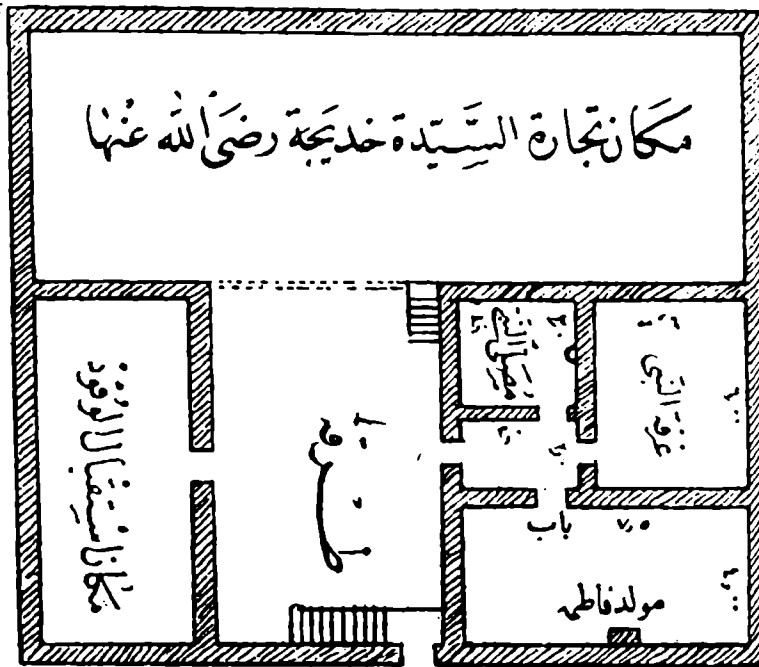 مكان تجارة السَّيِّدة خديجة رضي الله عنها
مكان استقبال الوفود
طرقة
مصلى النبي
غرفة النبي
باب
٧٫٥
مولد فاطمه